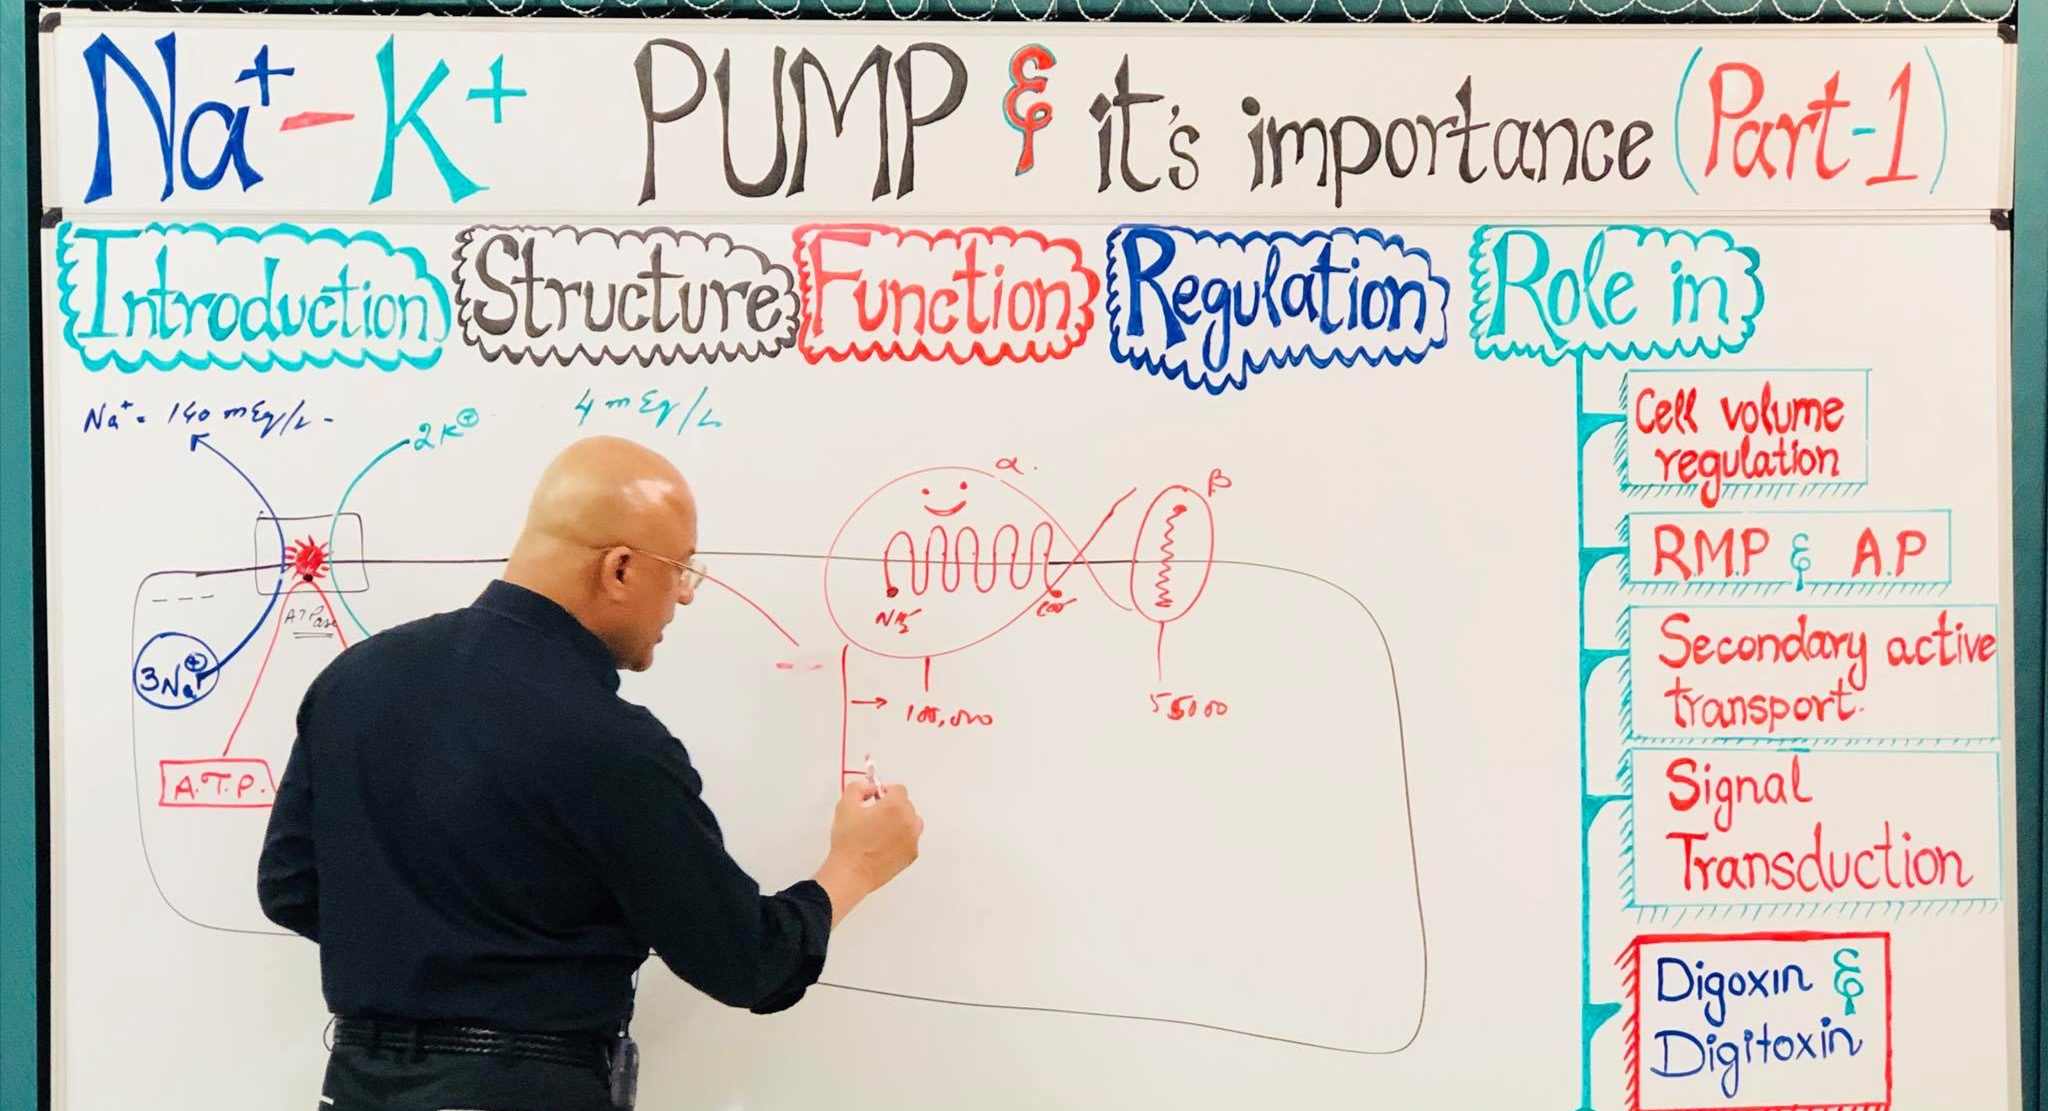 Na⁺-K⁺ PUMP & it's importance (Part-1)
Introduction Structure Function Regulation Role in
Na⁺ = 140 mEq/L -
2K⊕
4 mEq/L
ATPase
3Na⊕
A.T.P.
α.
β
NH₂
COO⁻
100,000
55000
Cell volume
regulation
R.M.P & A.P
Secondary active
transport.
Signal
Transduction
Digoxin &
Digitoxin